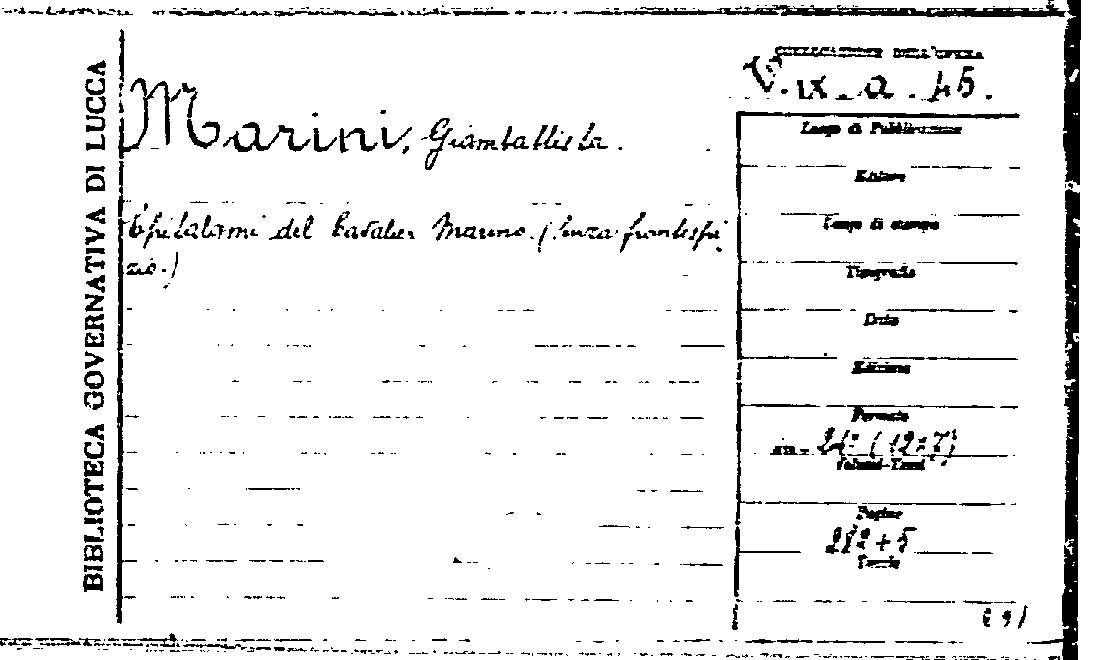 BIBLIOTECA GOVERNATIVA DI LUCCA
COLLOCAZIONE DELL'OPERA
V. IX. a. 45.
Marini, Giambattista.
Epitalami del Cavalier Marino. (Senza frontespi
zio.)
Luogo di Pubblicazione
Editore
Luogo di stampa
Tipografia
Data
Edizione
Formato
24° (12x7)
Volumi-Tomi
Pagine
282+5
Tavole